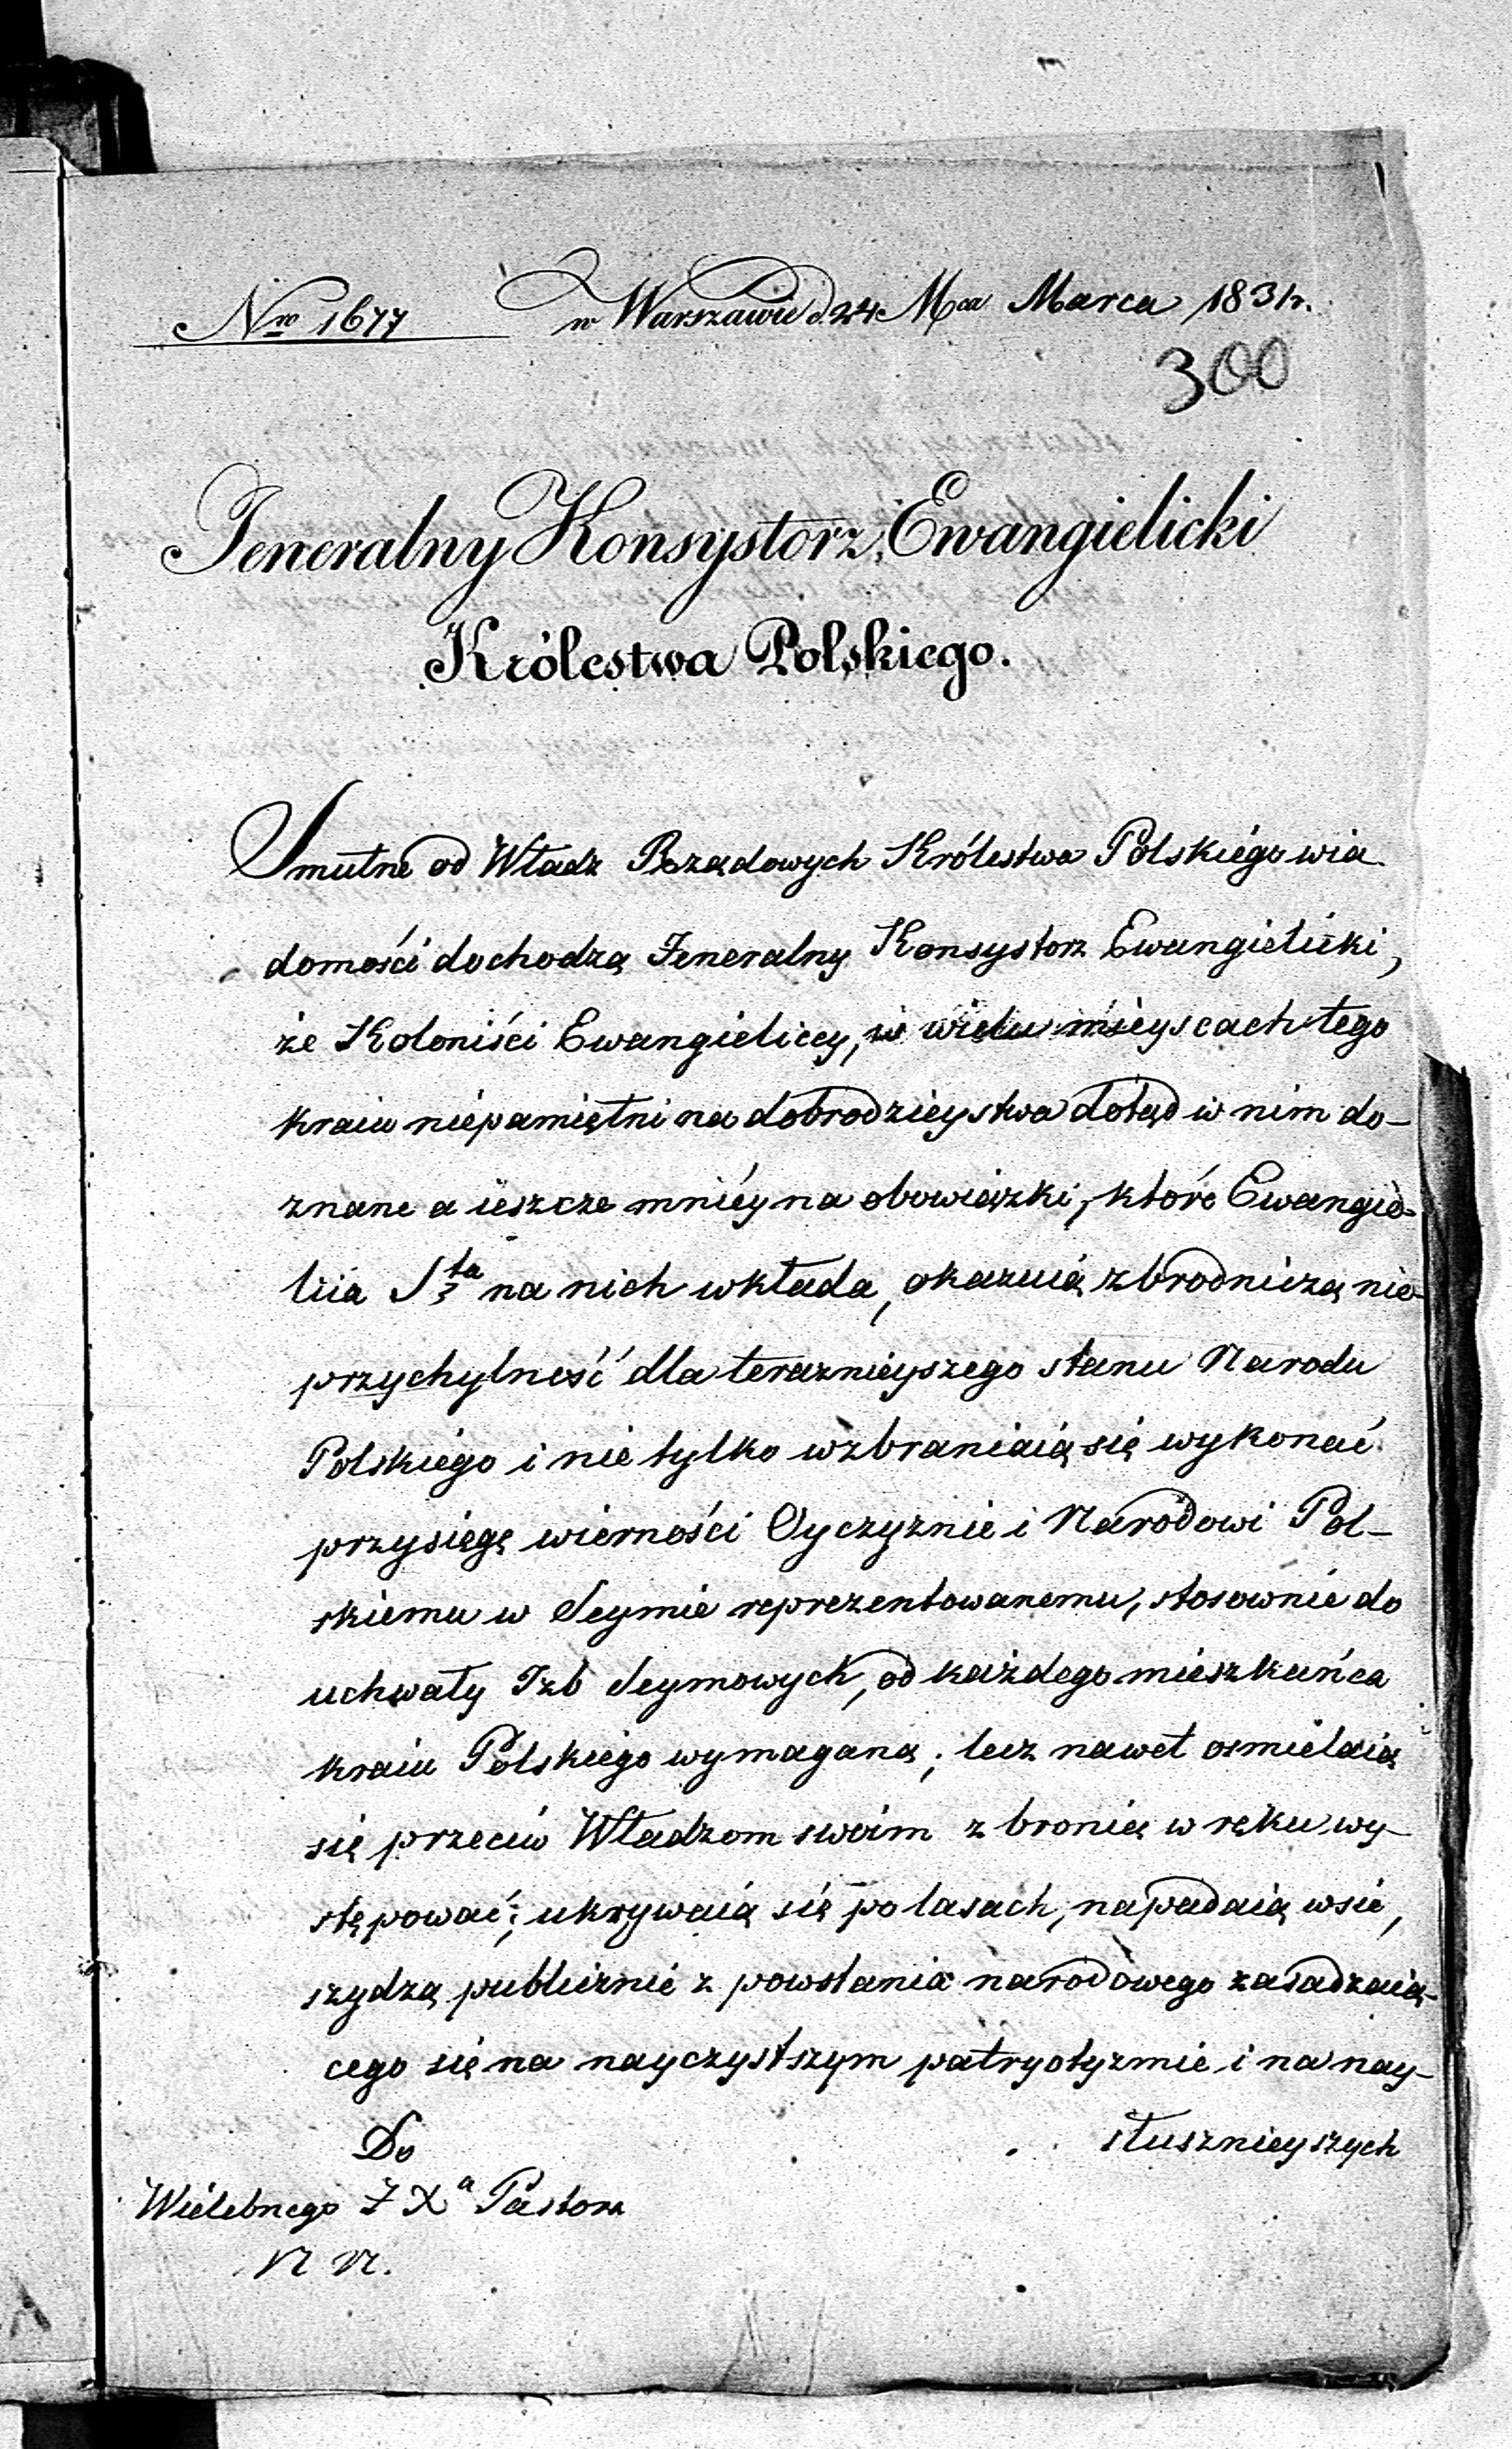 Nro 1677 w Warszawie d. 24 Mca Marca 1831 r.
300
Jeneralny Konsystorz Ewangielicki
Królestwa Polskiego.
Smutne od Władz Rządowych Królestwa Polskiégo wia
domości dochodzą Jeneralny Konsystorz Ewangielicki,
że Koloniści Ewangieliccy, w wielu mieyscach tego
kraiu niepamiętni na dobrodzieystwa dotąd w nim do-
znane a ieszcze mniéy na obowiązki, które Ewangie-
liia Sta na nich wkłada, okazuią zbrodniczą nie-
przychylność dla teraznieyszego stanu Narodu
Polskiégo i nie tylko wzbraniaią się wykonać
przysięgę wierności Oyczyznie i Narodowi Pol-
skiemu w Seymie reprezentowanemu, stosownie do
uchwały Izb Seymowych, od każdego mieszkańca
kraiu Polskiego wymaganą; lecz nawet osmielaią
się przeciw Władzom swoim z bronią w ręku wy-
stępować; ukrywaią się po lasach, napadaią wsie,
szydzą publicznie z powstania narodowego zasadzaią-
cego się na nayczystszym patryotyzmie i na nay-
słusznieyszych
Do
Wielebnego J Xa Pastora
N N.